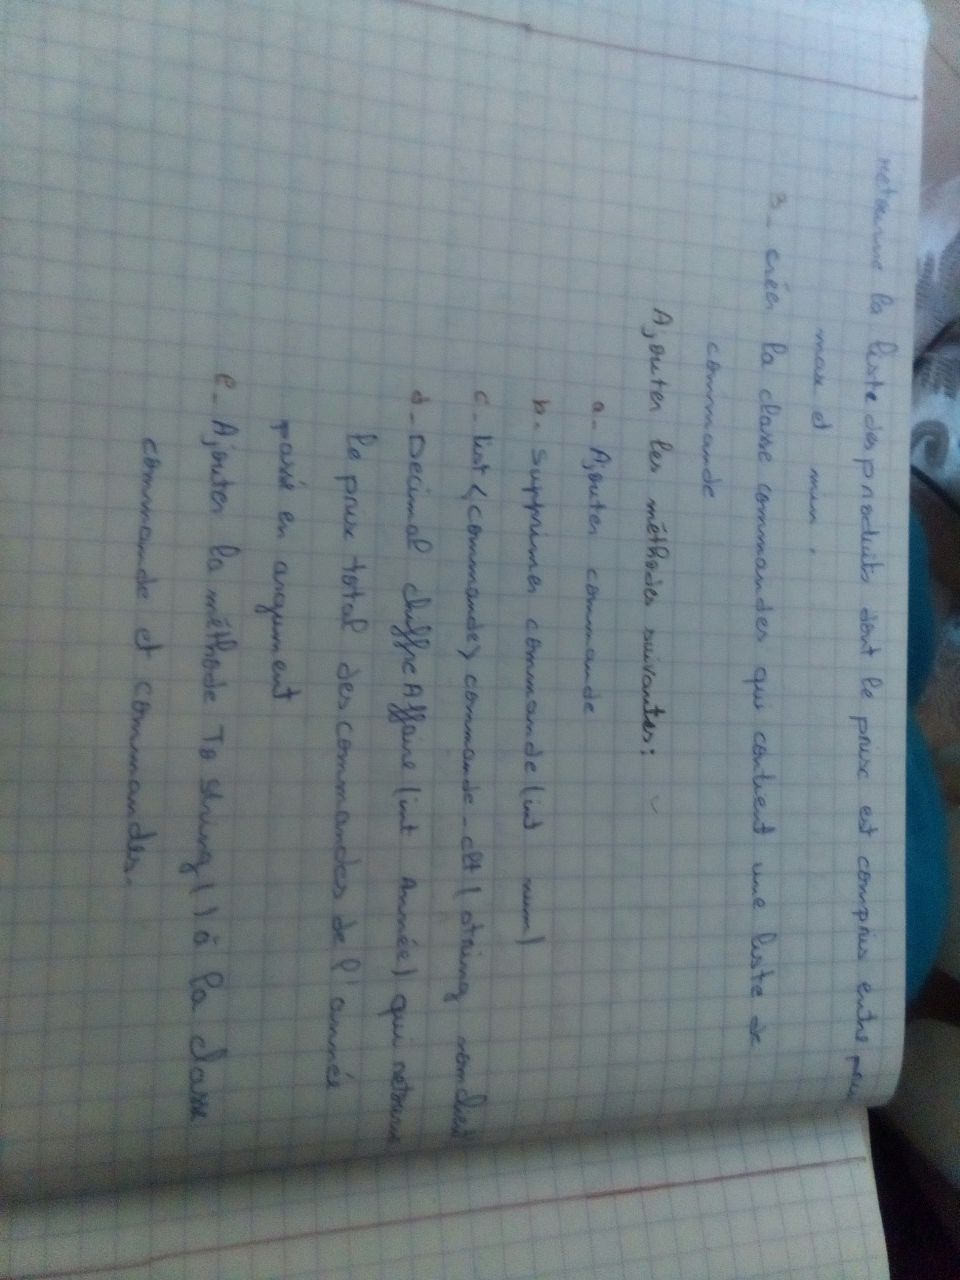 retourne la liste des produits dont le prix est compris entre
max et min.
3- créer la classe commandes qui contient une liste de
commande
Ajouter les méthodes suivantes:
a- Ajouter commande
b- supprimer commande (int num)
c- list <commande> commande-clt ( string nomclient
d- Decimal chiffre Affaire (int Année) qui retourne
le prix total des commandes de l'année
passé en argument
e- Ajouter la méthode To string() à la classe
commande et commandes.